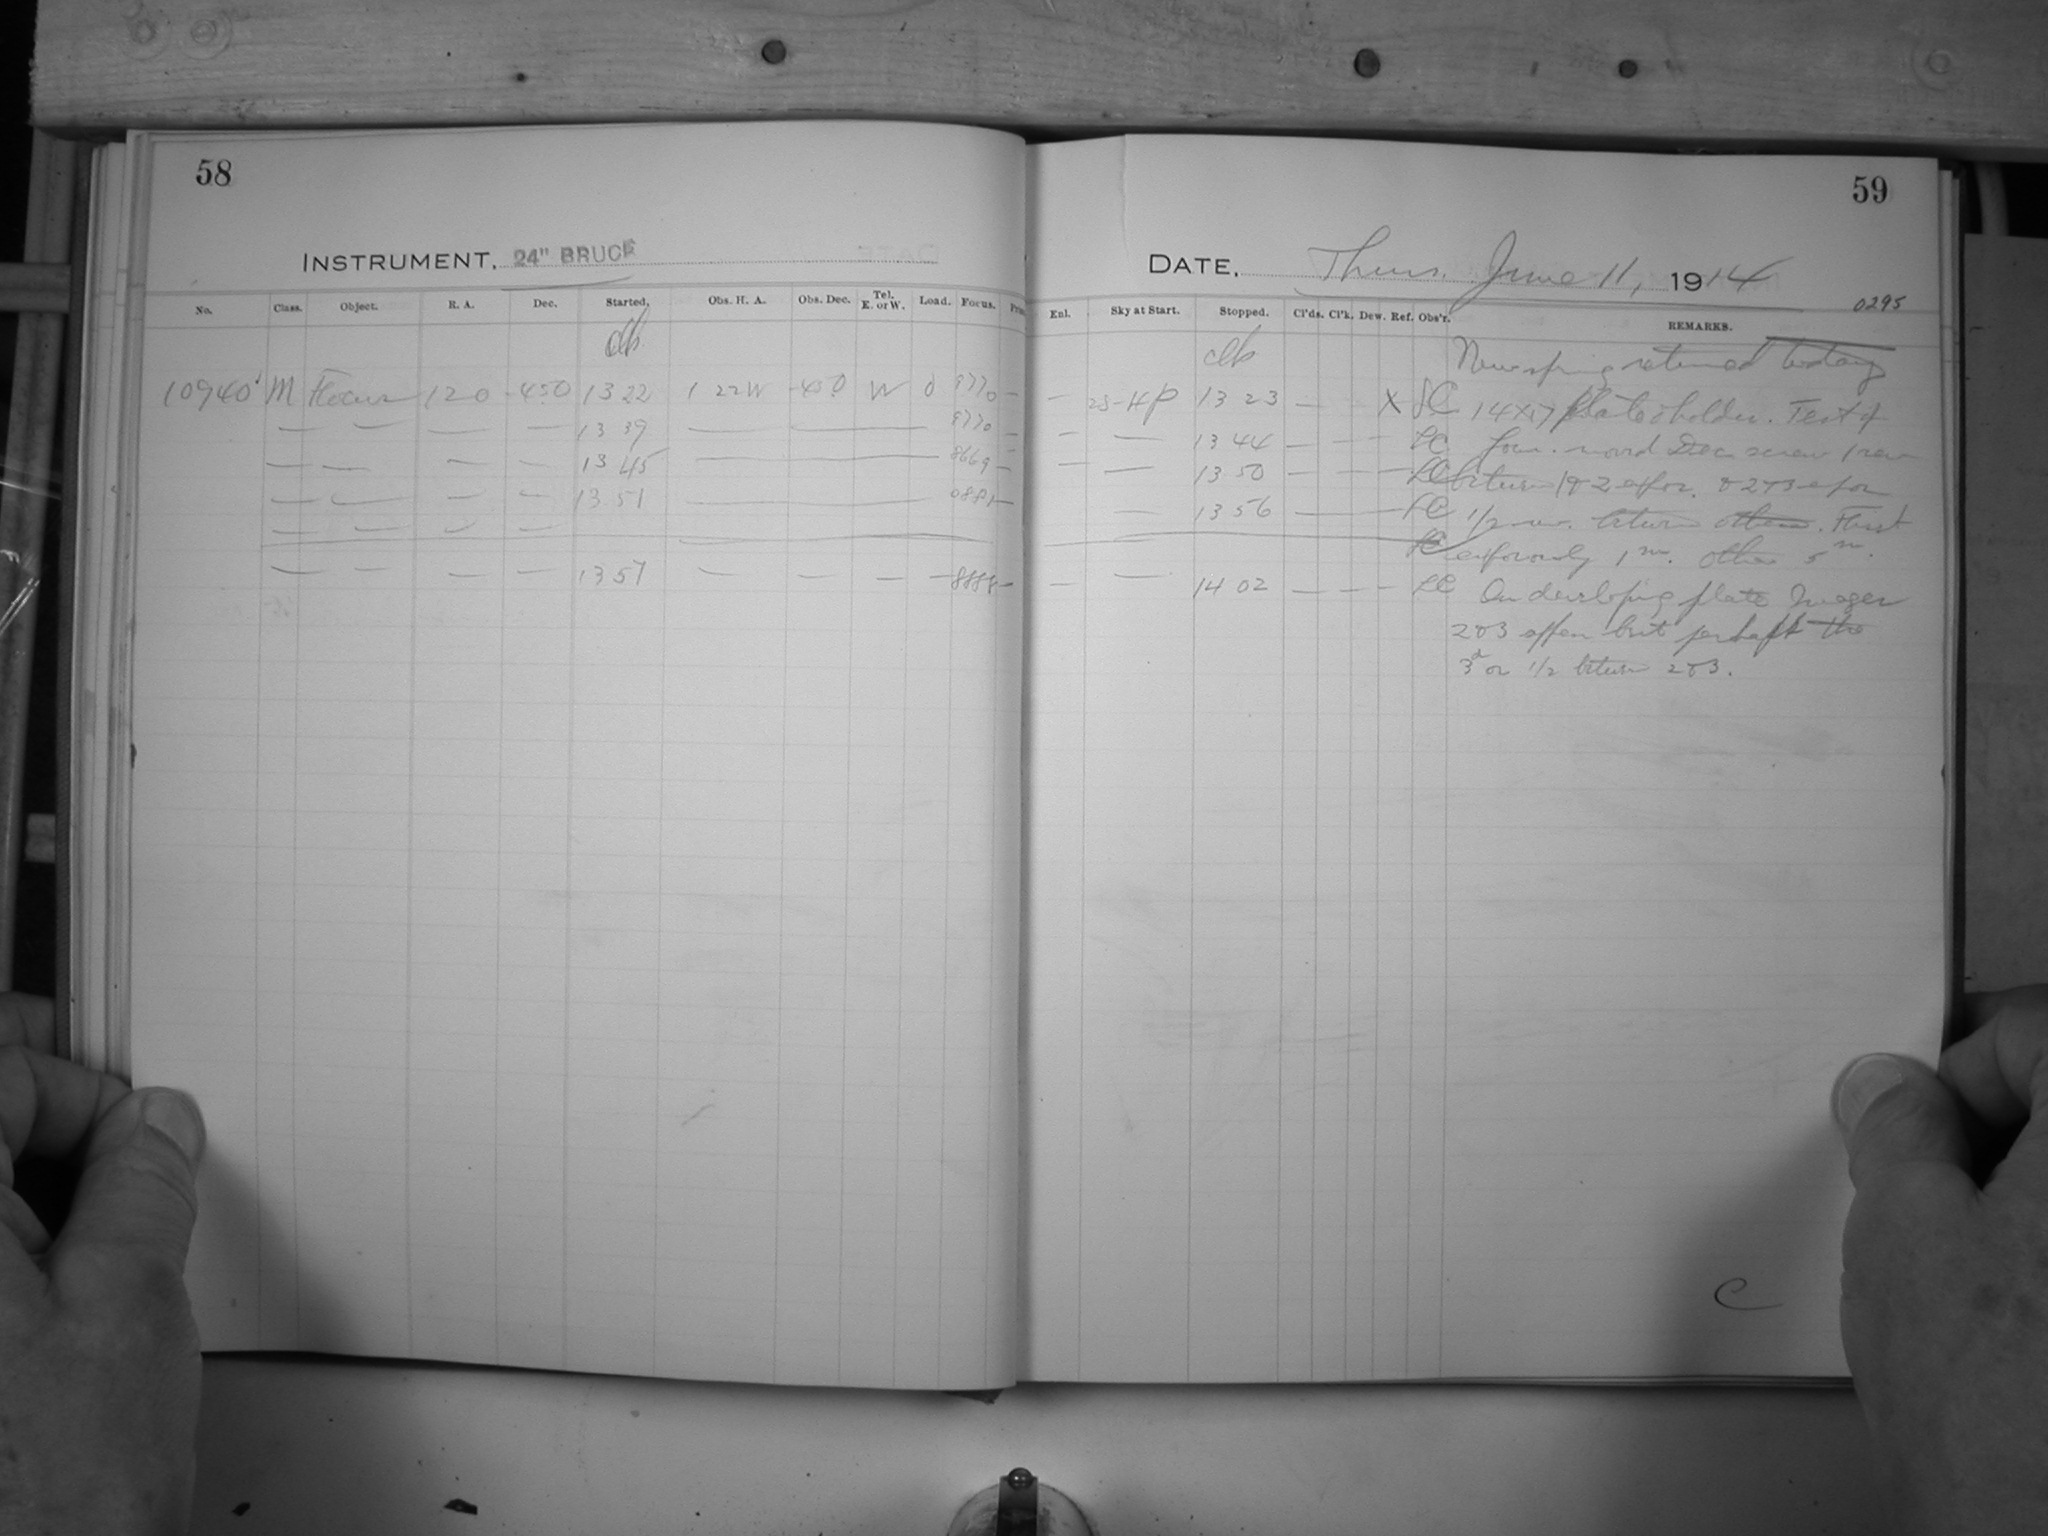 58
INSTRUMENT, 24" BRUCE
No. Class. Object. R. A. Dec. Started, Obs. H. A. Obs. Dec. Tel. E. or W. Load. Focus.
10940 M Focus 12 0 -450 13 22 1 22W -450 W 0 8770 —
— — — — 13 39 — — 8770 —
— — — — 13 45 — 8669 —
— — — — 13 51 —
— — — —
— — — — 13 57 — — — —
59
DATE, Thurs. June 11, 1914
0295
Enl. Sky at Start. Stopped. Cl'ds. Cl'k. Dew. Ref. Obs'r. REMARKS.
New spring returned today
— 13 23 — X SC 14X17 plateholder. Test of
— — 13 44 — — — SC focus. moved Dec. screw 1 rev
— — 13 50 — — — SC between 1 & 2 expos. & 2 & 3 expos
— 13 56 — SC 1/2 rev. between others. First
exposure only 1 m. others 5 m.
— — 14 02 — — — SC On developing plate Images
2 & 3 but perhaps the
3d or 1/2 between 2 & 3.
C